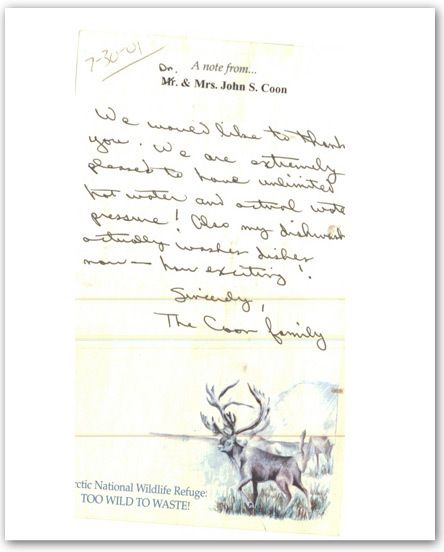 7-30-01
A note from...
Dr.
Mr. & Mrs. John S. Coon
We would like to thank
you. We are extremely
pleased to have unlimited
hot water and actual wate
pressure! Also my dishwash
actually washes dishes
now — how exciting!
Sincerely,
The Coon family
rctic National Wildlife Refuge:
TOO WILD TO WASTE!